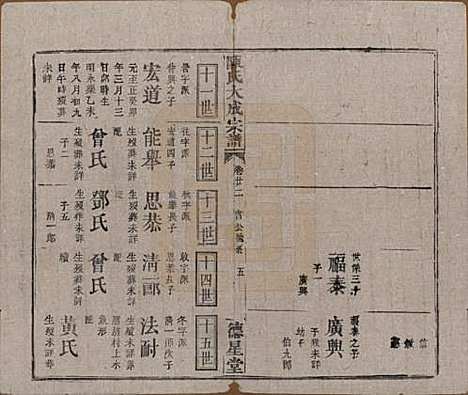 信
敍
世榮三子
福泰
子一
廣興
福泰之子
廣興
子殁未詳
幼子
伯九郎
陳氏大成宗譜
卷廿二
五
德星堂
十一世
十二世
十三世
十四世
十五世
晉字派
普興之子
宏道
元主正癸卯
年三月十三
日戌時生
明永樂乙未
年八月初九
日午時殁葬
未詳
往字派
宏道四子
能舉
生殁葬未詳
配
曾氏
生殁葬未詳
子二
思恭
秋字派
能舉長子
思恭
生殁葬未詳
配
鄧氏
生殁葬未詳
子五
清一郎
收字派
思恭五子
清一郎
配
曾氏
生殁葬未詳
續
冬字派
清一郎次子
法耐
生殁未詳
葬居村上水
魚形
配
黃氏
生殁葬未詳